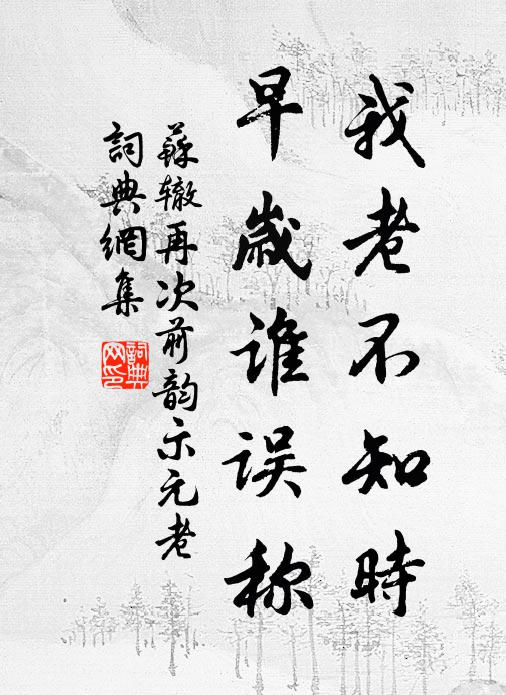 我老不知時
早歲谁误称
蘇辙再次前韵示元老
詞典網集
詞典網印